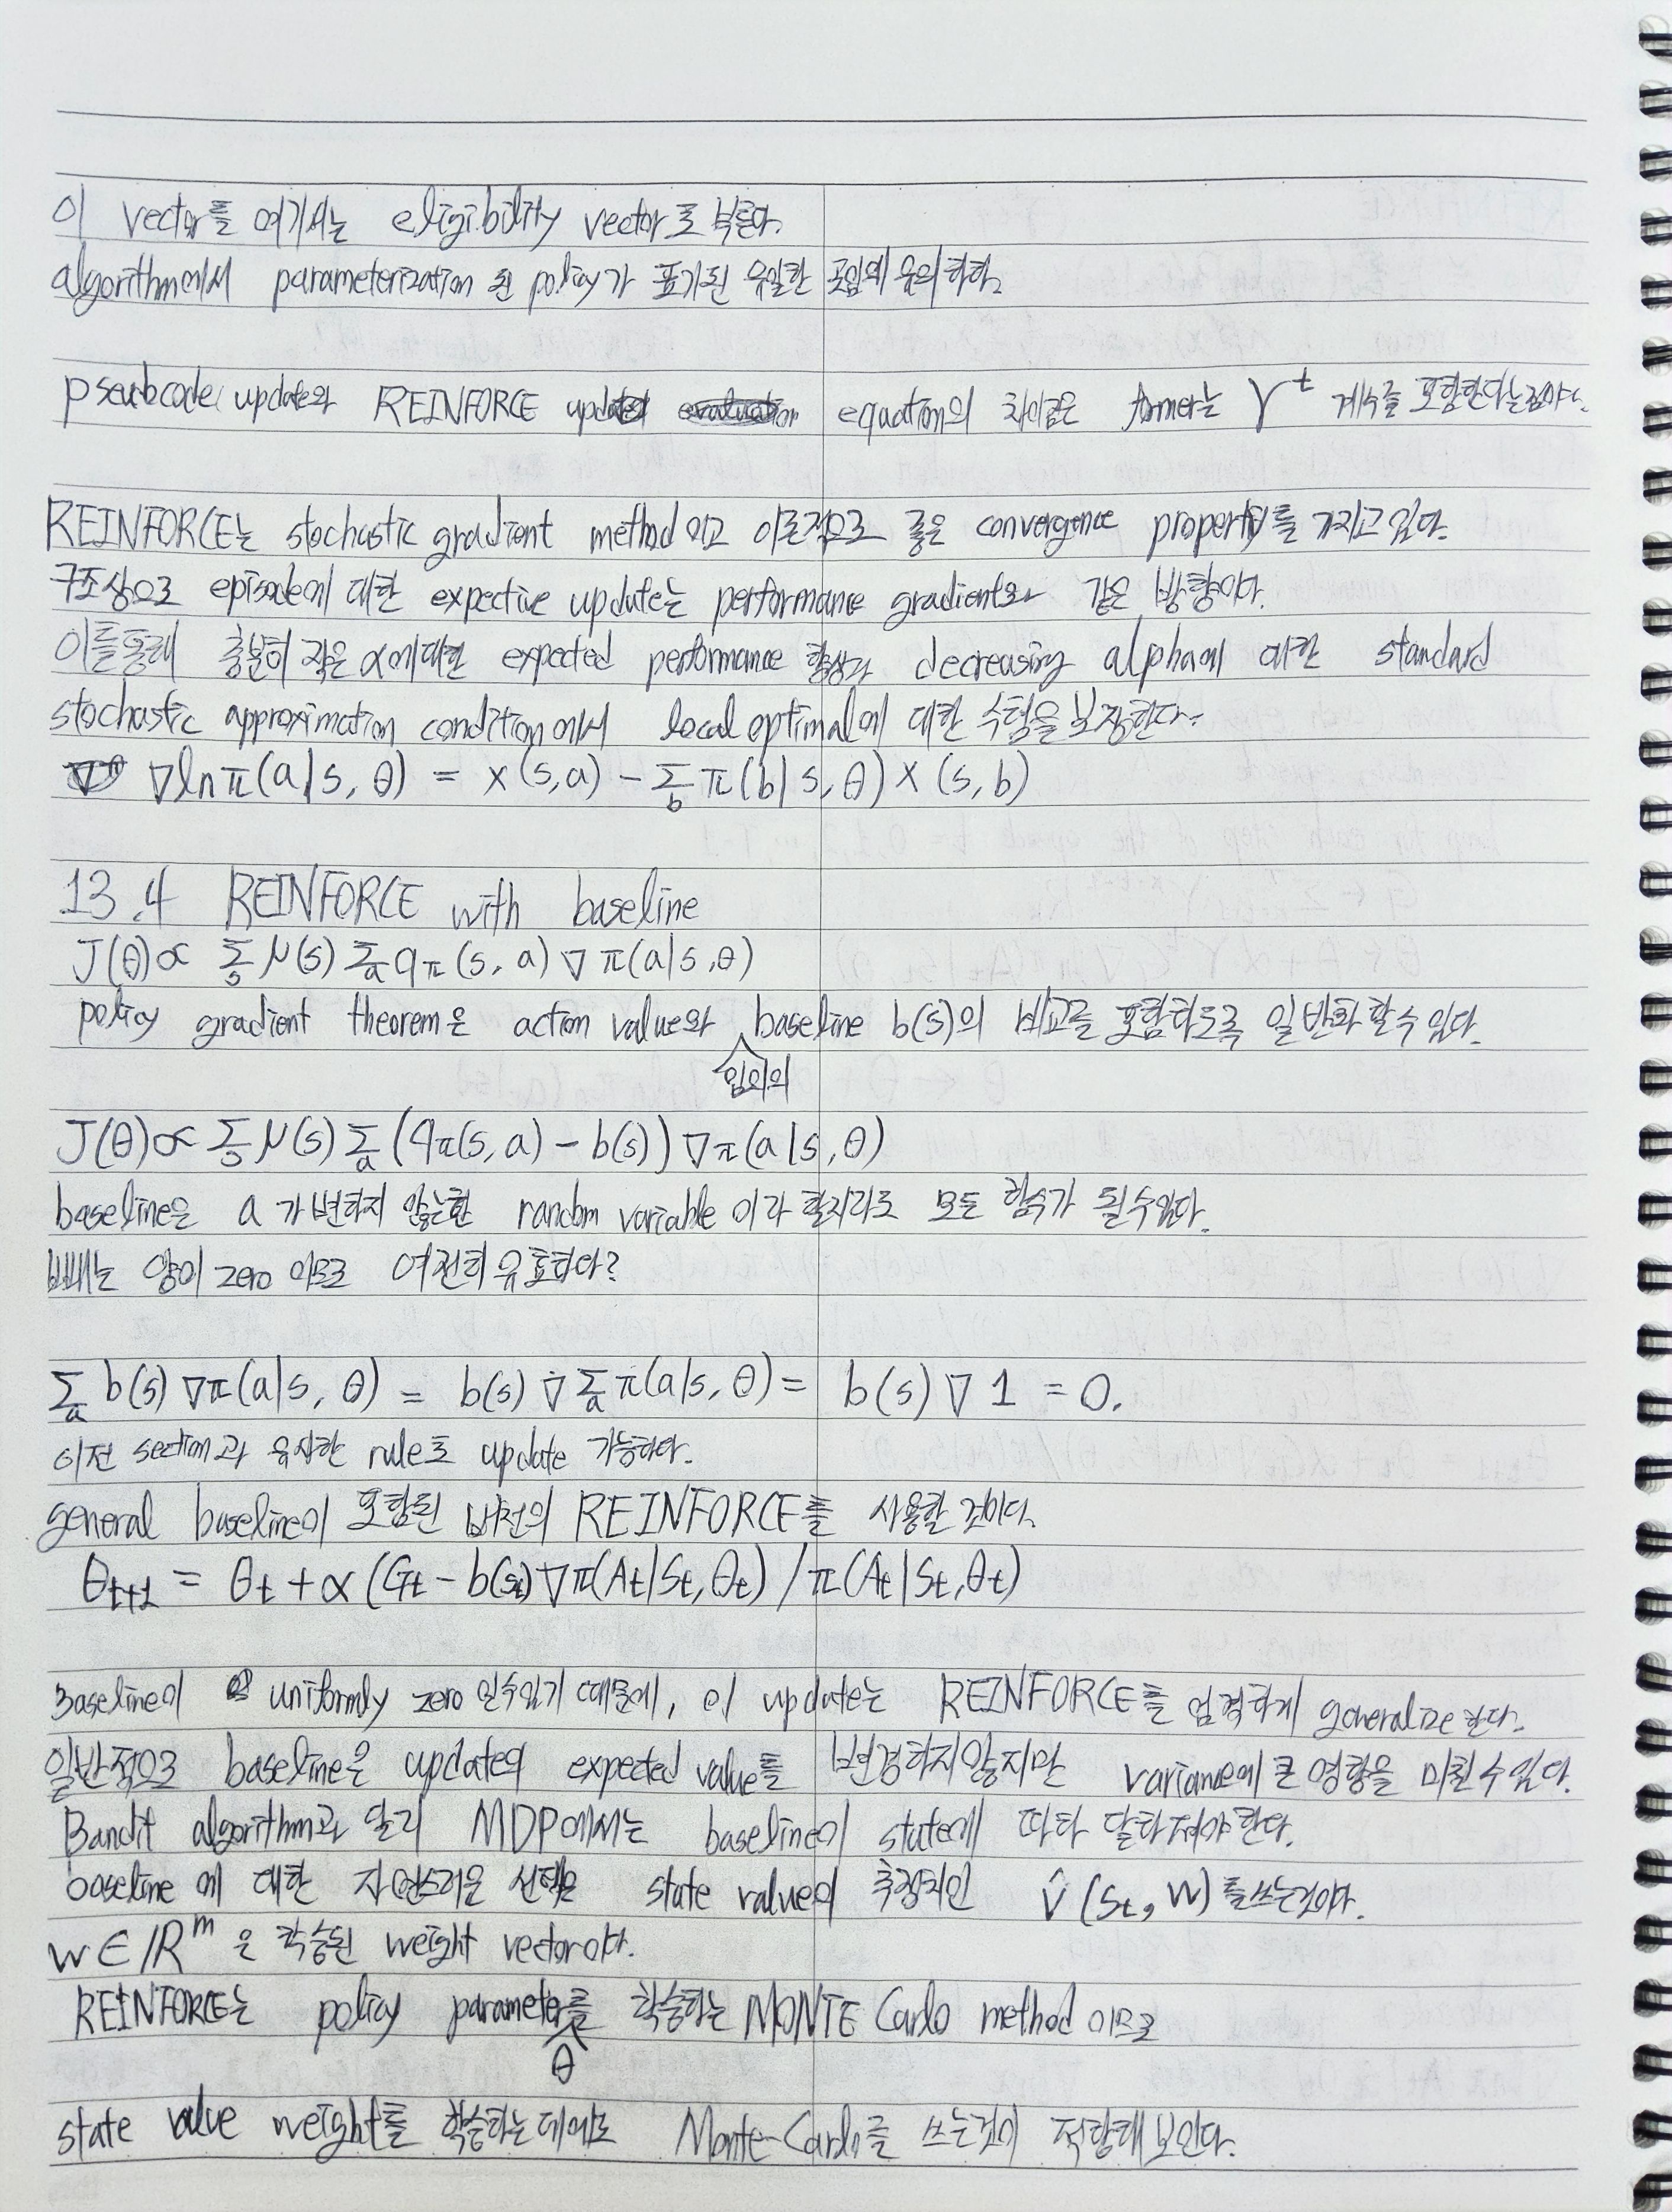 이 vector를 여기서는 eligibility vector로 부른다.
algorithm에서 parameterization 된 policy가 표기된 유일한 곳임에 유의하라.
pseudocode update와 REINFORCE update equation의 차이점은 former는 γ^t 계수를 포함한다는점이다.
REINFORCE는 stochastic gradient method 이고 이론적으로 좋은 convergence property를 가지고 있다.
구조상으로 episode에 대한 expective update는 performance gradient와 같은 방향이다.
이를통해 충분히 작은 α에대한 expected performance 향상과 decreasing alpha에 대한 standard
stochastic approximation condition에서 local optimal에 대한 수렴을 보장한다.
∇ln π(a|s, θ) = x(s,a) - Σ_b π(b|s, θ) x(s, b)
13.4 REINFORCE with baseline
J(θ) ∝ Σ_s μ(s) Σ_a q_π(s, a) ∇π(a|s,θ)
policy gradient theorem은 action value와 임의의 baseline b(s)의 비교를 포함하도록 일반화 할수 있다.
J(θ) ∝ Σ_s μ(s) Σ_a (q_π(s, a) - b(s)) ∇π(a|s, θ)
baseline은 a가 변하지 않는한 random variable 이라 할지라도 모든 함수가 될수있다.
빼는 양이 zero 이므로 여전히 유효하다?
Σ_a b(s) ∇π(a|s, θ) = b(s) ∇ Σ_a π(a|s, θ) = b(s) ∇ 1 = 0.
이전 section과 유사한 rule로 update 가능하다.
general baseline이 포함된 버전의 REINFORCE를 사용할 것이다.
θ_{t+1} = θ_t + α (G_t - b(s_t) ∇π(A_t|S_t, θ_t) / π(A_t|S_t, θ_t)
Baseline이 uniformly zero 일수있기 때문에, 이 update는 REINFORCE를 엄격하게 generalize 한다.
일반적으로 baseline은 update의 expected value를 변경하지않지만 variance에 큰 영향을 미칠 수 있다.
Bandit algorithm과 달리 MDP에서는 baseline이 state에 따라 달라져야 한다.
baseline에 대한 자연스러운 선택은 state value의 추정치인 v̂(S_t, w)를쓰는것이다.
w ∈ R^m 은 학습된 weight vector이다.
REINFORCE는 policy parameter θ를 학습하는 MONTE Carlo method 이므로
state value weight를 학습하는 데에도 Monte-Carlo를 쓰는것이 적합해 보인다.